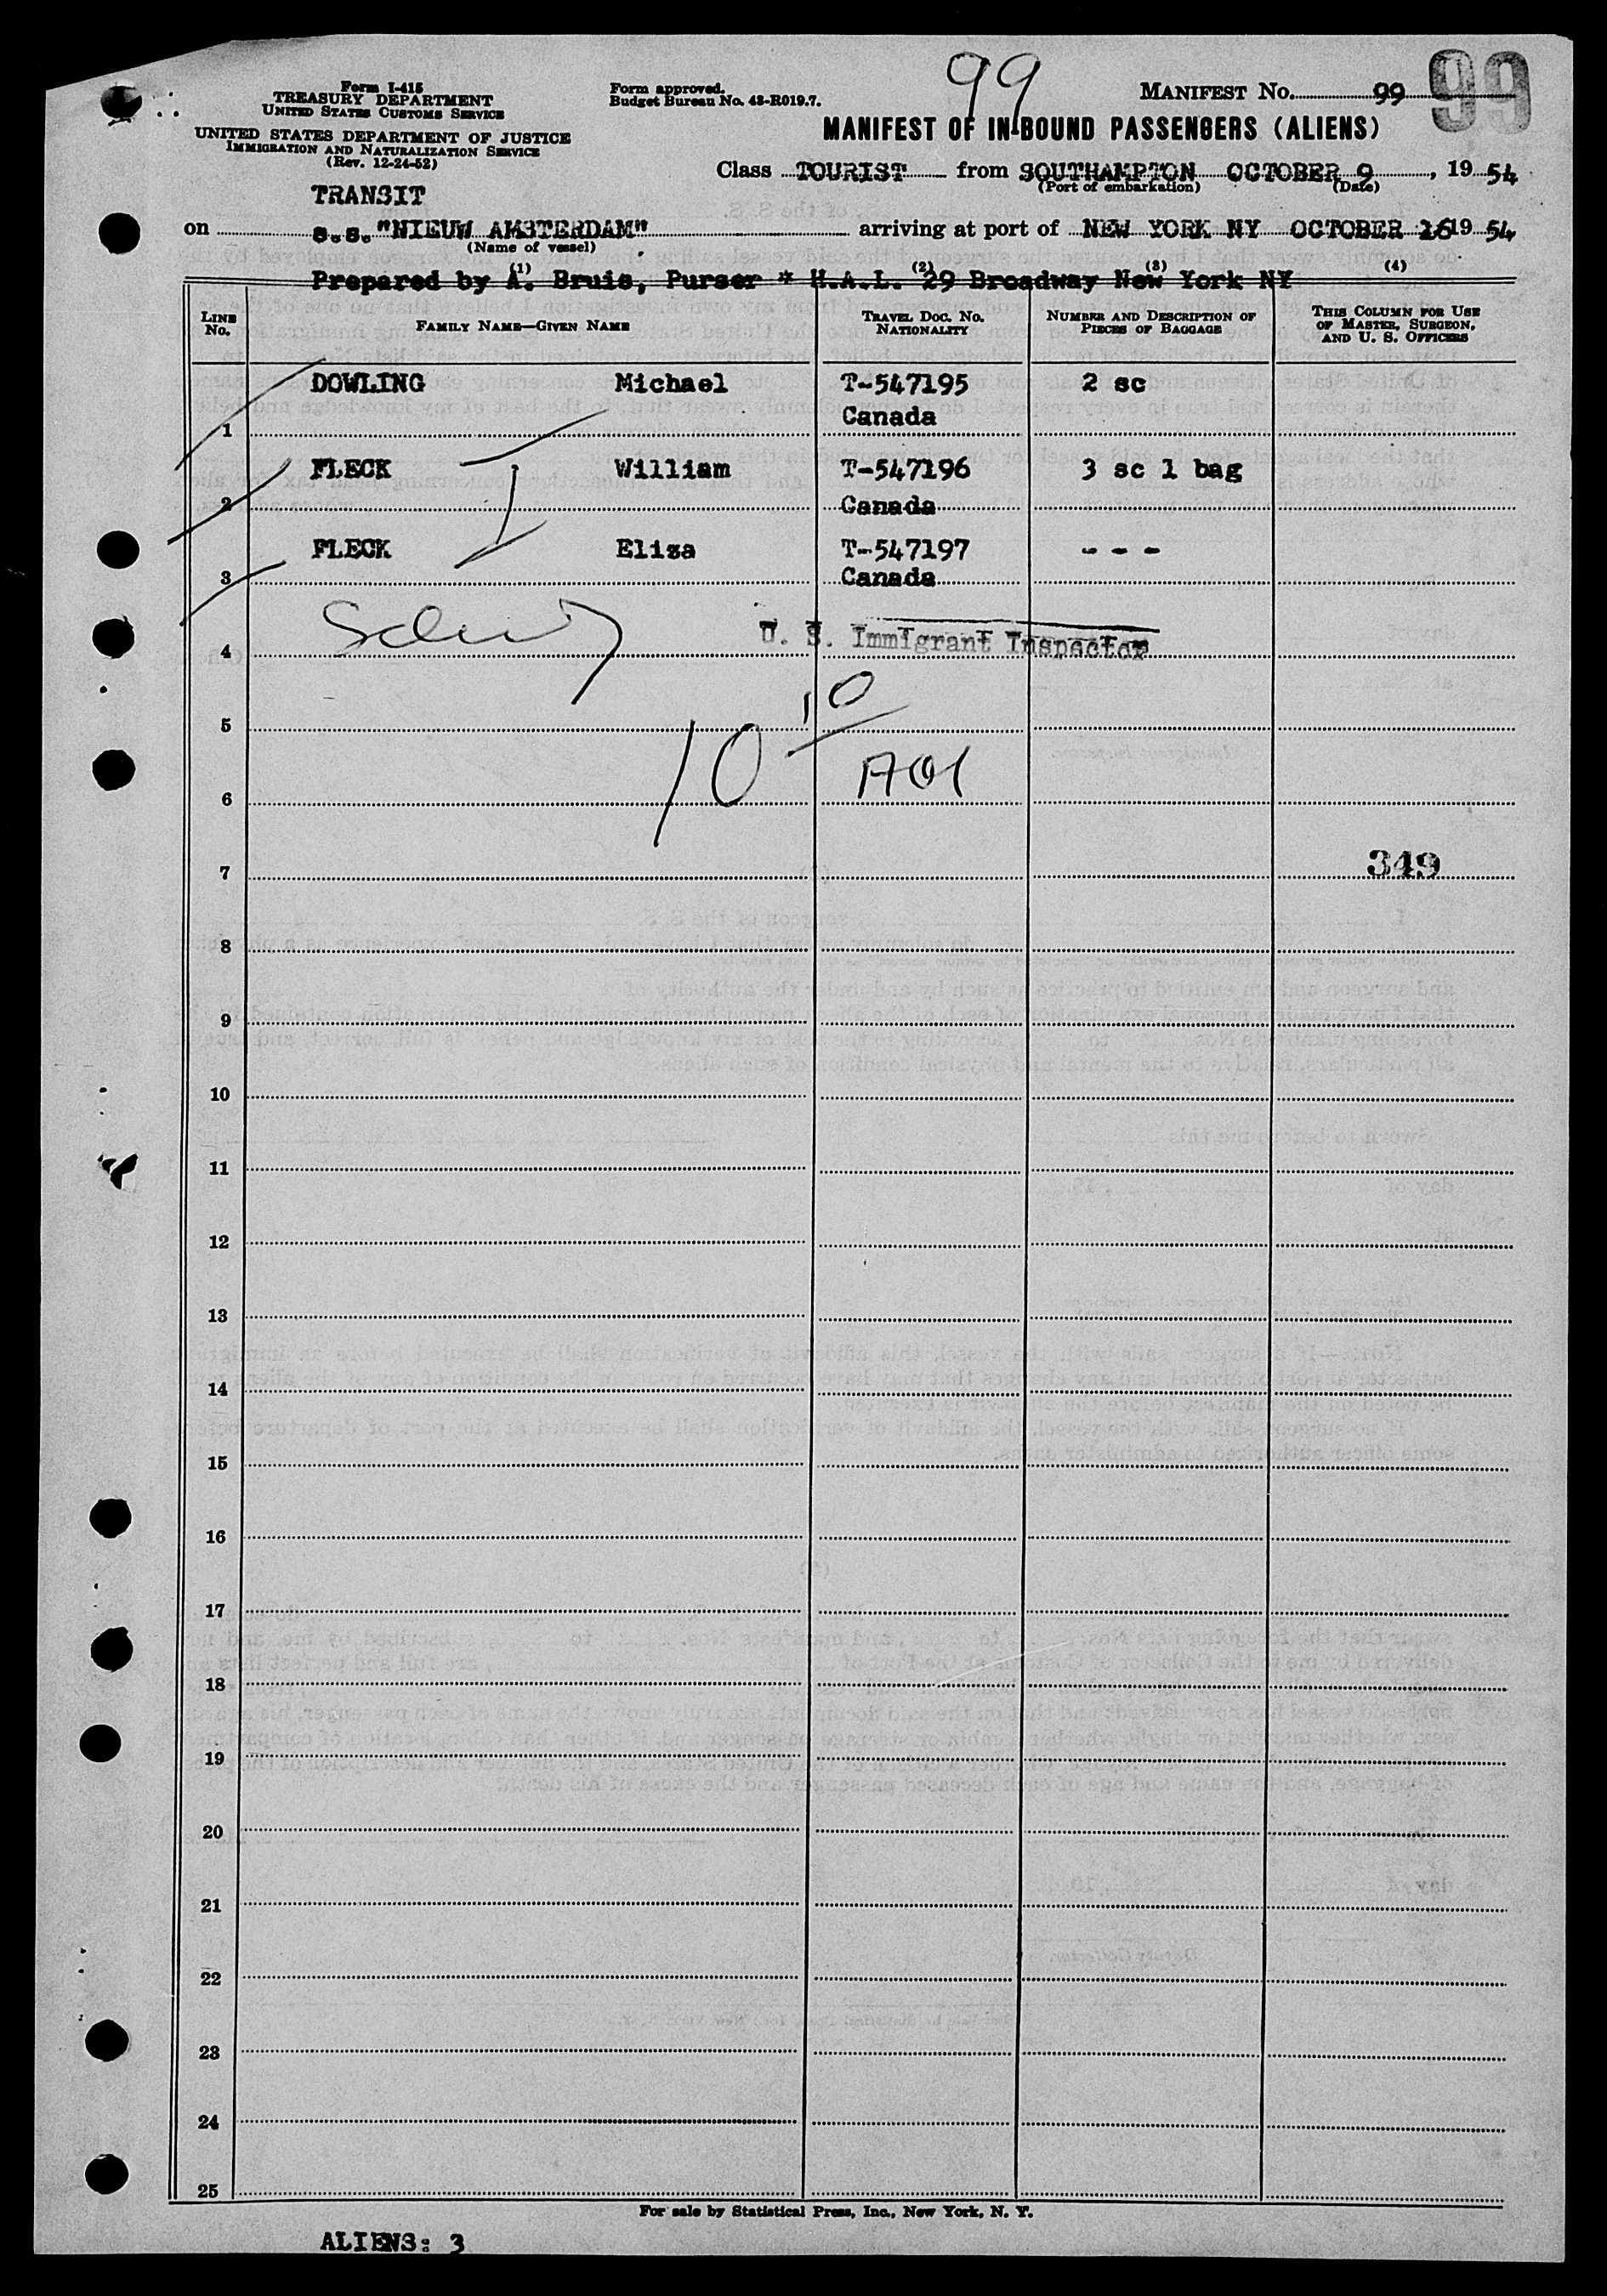 99
99
Form I-415
TREASURY DEPARTMENT
UNITED STATES CUSTOMS SERVICE
UNITED STATES DEPARTMENT OF JUSTICE
IMMIGRATION AND NATURALIZATION SERVICE
(Rev. 12-24-52)
Form approved.
Budget Bureau No. 43-R019.7.
MANIFEST NO. 99
MANIFEST OF IN-BOUND PASSENGERS (ALIENS)
Class TOURIST from SOUTHAMPTON OCTOBER 9, 1954
(Port of embarkation) (Date)
TRANSIT
on s.s. "NIEUW AMSTERDAM" arriving at port of NEW YORK NY OCTOBER 16 1954
(Name of vessel)
(1) (2) (3) (4)
Prepared by A. Bruis, Purser * H.A.L. 29 Broadway New York NY
LINE No. FAMILY NAME—GIVEN NAME TRAVEL DOC. NO. NATIONALITY NUMBER AND DESCRIPTION OF PIECES OF BAGGAGE THIS COLUMN FOR USE OF MASTER, SURGEON, AND U. S. OFFICERS
DOWLING Michael T-547195 2 sc
1 Canada
FLECK William T-547196 3 sc 1 bag
2 Canada
FLECK Eliza T-547197 - - -
3 Canada
4 U. S. Immigrant Inspector
5 10
6 10
7 349
8
9
10
11
12
13
14
15
16
17
18
19
20
21
22
23
24
25
For sale by Statistical Press, Inc., New York, N. Y.
ALIENS: 3